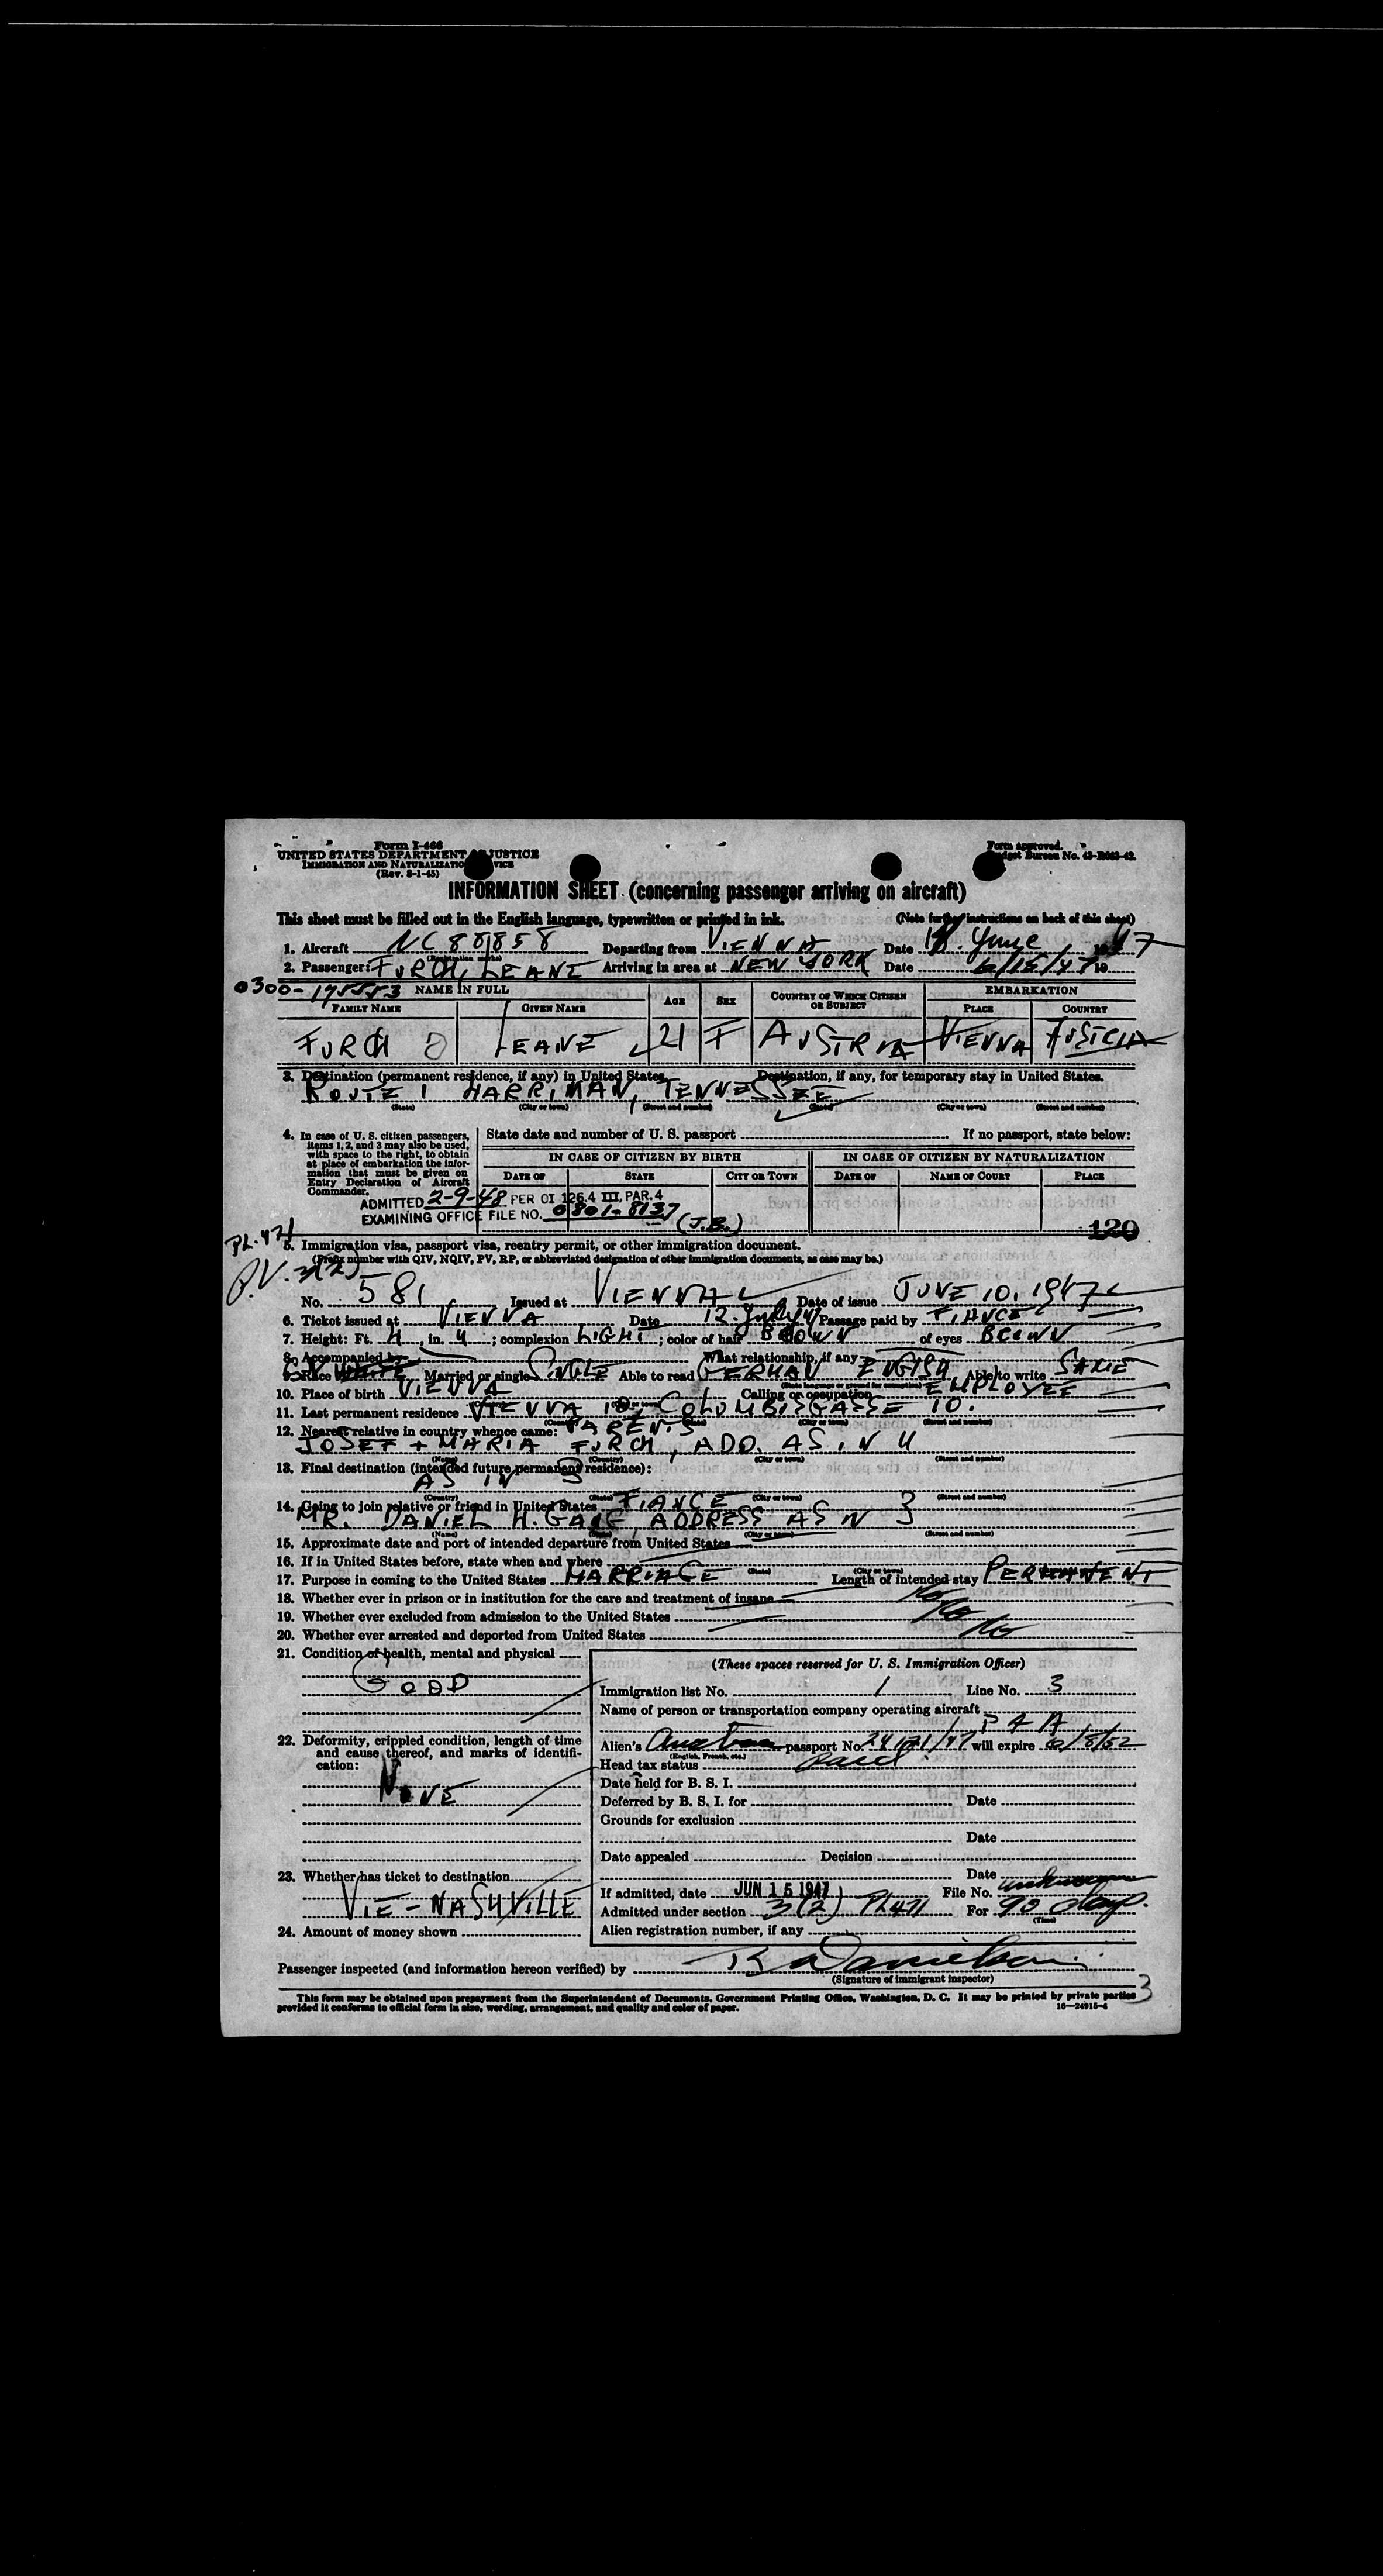 Form I-466
UNITED STATES DEPARTMENT OF JUSTICE
IMMIGRATION AND NATURALIZATION SERVICE
(Rev. 8-1-45)
Form approved.
Budget Bureau No. 43-R063-42.
INFORMATION SHEET (concerning passenger arriving on aircraft)
This sheet must be filled out in the English language, typewritten or printed in ink. (Note further instructions on back of this sheet)
1. Aircraft NC 88858 Departing from VIENNA Date June 1947
(Registration marks)
2. Passenger: FURCH, LEANE Arriving in area at NEW YORK Date 6/15/47 19
0300-175553 NAME IN FULL AGE SEX COUNTRY OF WHICH CITIZEN OR SUBJECT EMBARKATION
FAMILY NAME GIVEN NAME PLACE COUNTRY
FURCH LEANE 21 F AUSTRIA VIENNA AUSTRIA
3. Destination (permanent residence, if any) in United States. Destination, if any, for temporary stay in United States.
ROUTE 1 HARRIMAN, TENNESSEE
(State) (City or town) (Street and number) (State) (City or town) (Street and number)
4. In case of U. S. citizen passengers, items 1, 2, and 3 may also be used, with space to the right, to obtain at place of embarkation the information that must be given on Entry Declaration of Aircraft Commander.
State date and number of U. S. passport If no passport, state below:
IN CASE OF CITIZEN BY BIRTH IN CASE OF CITIZEN BY NATURALIZATION
DATE OF STATE CITY OR TOWN DATE OF NAME OF COURT PLACE
ADMITTED 2-9-48 PER OI 126.4 III, PAR. 4
EXAMINING OFFICE FILE NO. 0801-8137 (J.B.)
120
PL. 471
P.V. 3(2)
5. Immigration visa, passport visa, reentry permit, or other immigration document.
(Prefix number with QIV, NQIV, PV, RP, or abbreviated designation of other immigration documents, as case may be.)
No. 581 Issued at VIENNA Date of issue JUNE 10, 1947
6. Ticket issued at VIENNA Date 12. Passage paid by FIANCE
7. Height: Ft. 4, in. 4; complexion LIGHT; color of hair BROWN of eyes BROWN
8. Accompanied by What relationship, if any
9. Race WHITE Married or single SINGLE Able to read GERMAN ENGLISH Able to write SAME
(State language or ground for exemption)
10. Place of birth VIENNA Calling or occupation EMPLOYEE
(Country) (City or town)
11. Last permanent residence VIENNA 10, COLUMBUSGASSE 10.
(Country) (State) (City or town) (Street and number)
12. Nearest relative in country whence came: PARENTS
JOSEF + MARIA FURCH, ADD. AS IN 11
(Name) (Country) (City or town) (Street and number)
13. Final destination (intended future permanent residence):
AS IN 3
(Country) (State) (City or town) (Street and number)
14. Going to join relative or friend in United States FIANCE
MR. DANIEL H. ADDRESS AS IN 3
(Name) (State) (City or town) (Street and number)
15. Approximate date and port of intended departure from United States
16. If in United States before, state when and where
(State) (City or town)
17. Purpose in coming to the United States MARRIAGE Length of intended stay PERMANENT
18. Whether ever in prison or in institution for the care and treatment of insane No
19. Whether ever excluded from admission to the United States No
20. Whether ever arrested and deported from United States No
21. Condition of health, mental and physical
GOOD
22. Deformity, crippled condition, length of time and cause thereof, and marks of identification:
NONE
23. Whether has ticket to destination
VIE - NASHVILLE
24. Amount of money shown
(These spaces reserved for U. S. Immigration Officer)
Immigration list No. 1 Line No. 3
Name of person or transportation company operating aircraft
P A A
Alien's Austrian passport No. will expire
(English, French, etc.)
Head tax status paid
Date held for B. S. I.
Deferred by B. S. I. for Date
Grounds for exclusion
Date
Date appealed Decision
Date
If admitted, date JUN 15 1947 File No. unknown
Admitted under section 3(2) PL471 For 90 days.
(Time)
Alien registration number, if any
Passenger inspected (and information hereon verified) by
(Signature of immigrant inspector)
3
This form may be obtained upon prepayment from the Superintendent of Documents, Government Printing Office, Washington, D. C. It may be printed by private parties
provided it conforms to official form in size, wording, arrangement, and quality and color of paper. 16—24915-4